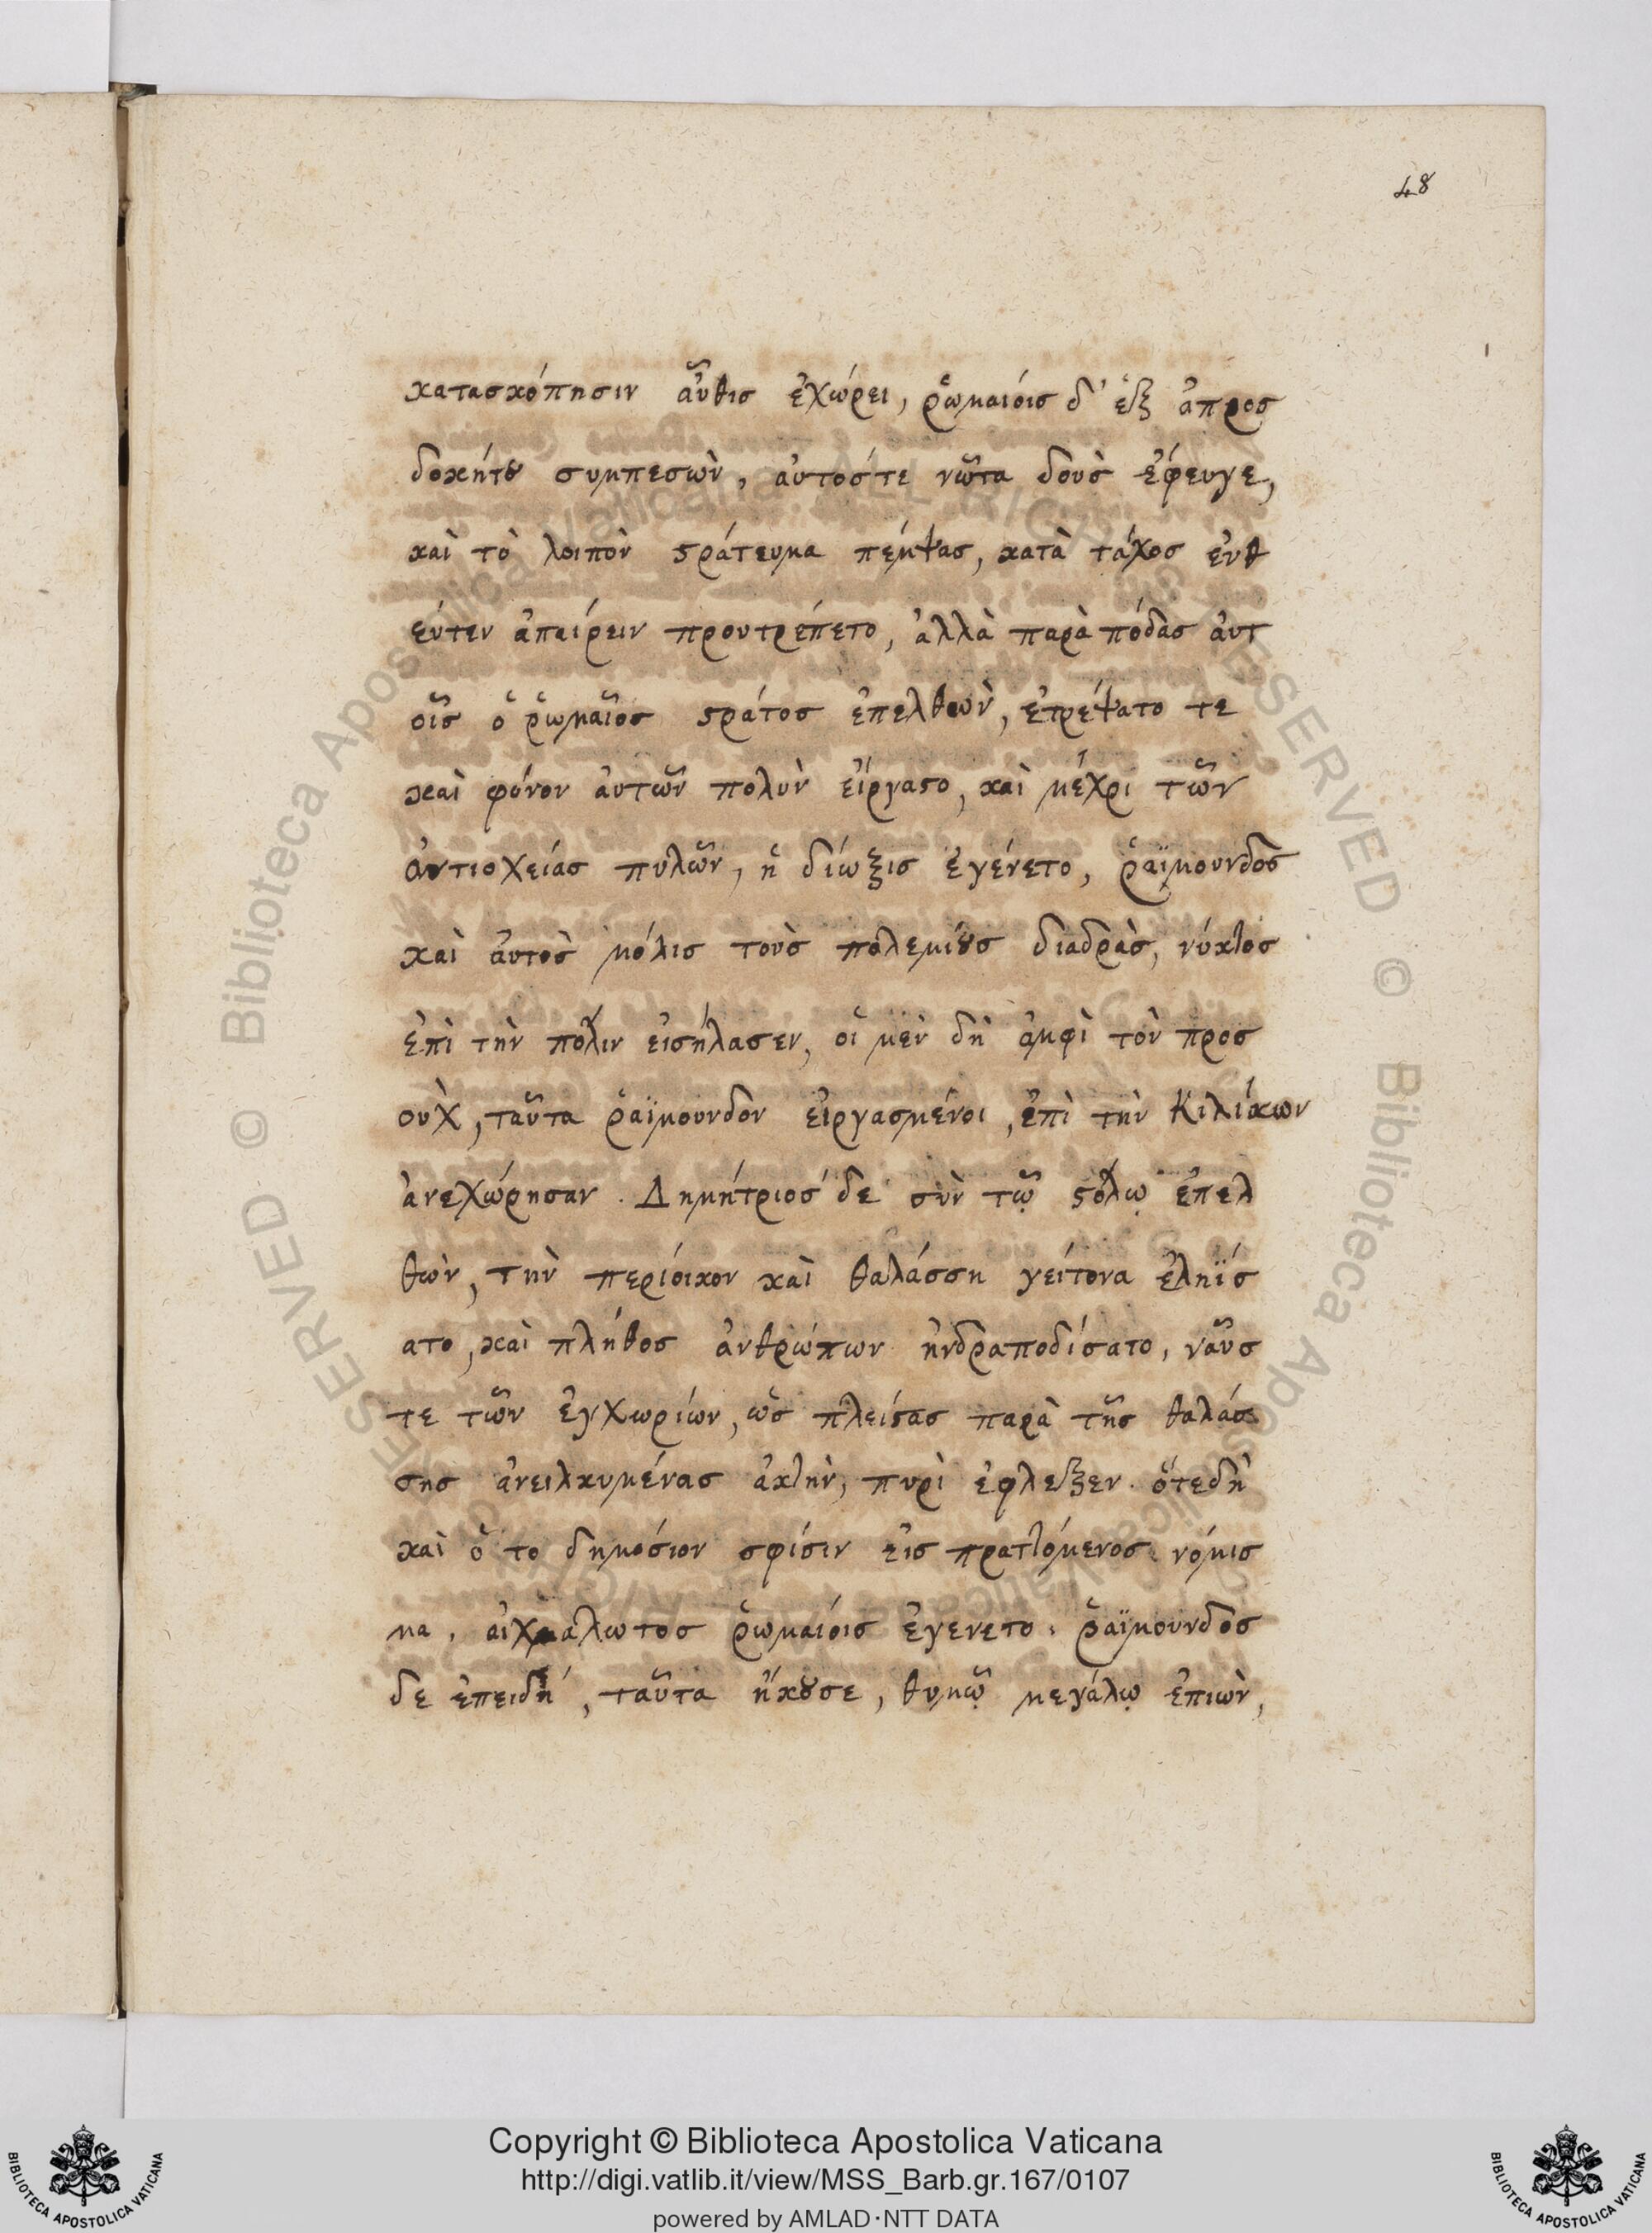 48
κατασκόπησιν αὖθις ἐχώρει, ῥωμαίοις δ' ἐξ ἀπροσ
δοκήτȣ συμπεσὼν, ἀυτόστε νῶτα δοὺς ἔφευγε,
καὶ τὸ λοιπὸν ϛράτευμα πέμψας, κατὰ τάχος ἐνθ
εύτεν ἀπαίρειν προυτρέπετο, ἀλλὰ παρὰ πόδας ἀυτ
οῖς ὁ ῥωμαῖος ϛράτος ἐπελθὼν, ἐτρέψατο τε
καὶ φόνον ἀυτῶν πολὺν εἴργαϛο, καὶ μέχρι τῶν
ἀντιοχείας πυλῶν, ἡ δίωξις ἐγένετο, ῥαϊμουνδος
καὶ ἀυτὸς μόλις τοὺς πολεμίȣς διαδρὰς, νύκτος
ἐπὶ τὴν πόλιν εἰσήλασεν, οἱ μὲν δὴ ἀμφὶ τὸν προσ
ουχ, ταῦτα ῥαϊμουνδον εἰργασμένοι, ἐπὶ τὴν Κιλίκων
ἀνεχώρησαν. Δημήτριός δε σὺν τῷ ϛόλῳ ἐπελ
θὼν, τὴν περίοικον καὶ θαλάσση γείτονα ἐληΐσ
ατο, καὶ πλήθος ἀνθρώπων ἠνδραποδίσατο, ναῦς
τε τῶν ἐγχωρίων, ὡς πλείϛας παρὰ τῆς θαλάσ
σης ἀνειλκυμένας ἀκτὴν, πυρὶ ἐφλεξεν. ὅτεδὴ
καὶ ὁ το δημόσιον σφίσιν εἰς πραττόμενος νόμισ
μα, αἰχμαλωτος ῥωμαίοις ἐγενετο. ῥαϊμουνδος
δε ἐπειδὴ, ταῦτα ἤκȣσε, θυμῷ μεγάλῳ ἐπιὼν,
Copyright © Biblioteca Apostolica Vaticana
http://digi.vatlib.it/view/MSS_Barb.gr.167/0107
powered by AMLAD·NTT DATA